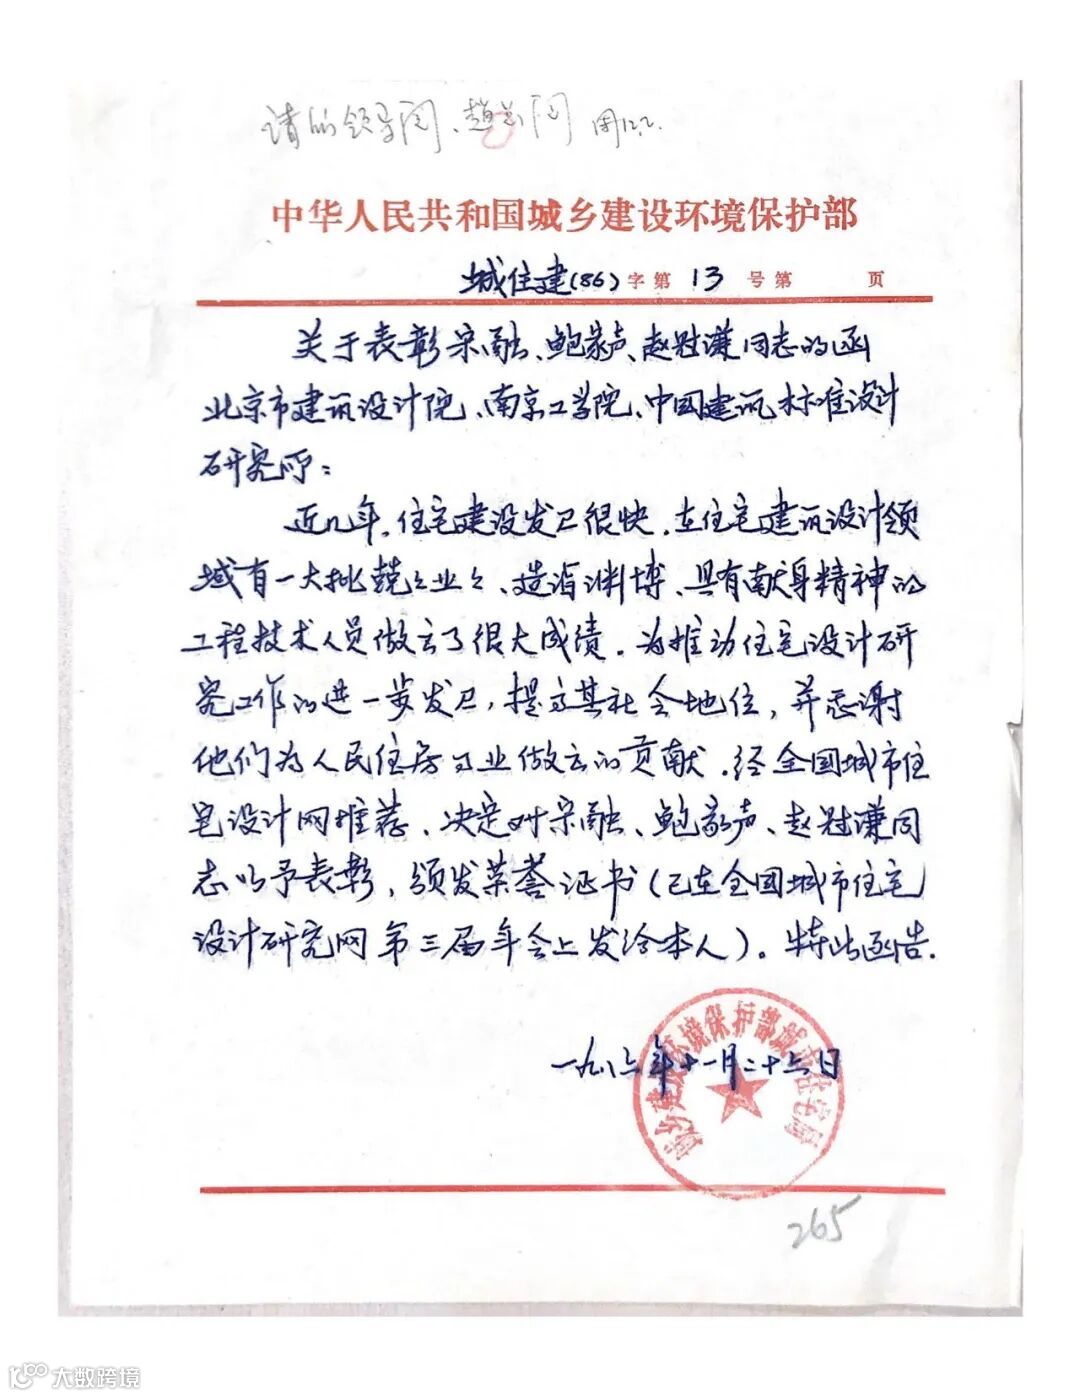 请所领导阅、赵总阅 周12.2.
中华人民共和国城乡建设环境保护部
城住建(86)字第13号第 页
关于表彰宋融、鲍家声、赵冠谦同志的函
北京市建筑设计院、南京工学院、中国建筑标准设计
研究所:
近几年,住宅建设发展很快,在住宅建筑设计领
域有一大批兢兢业业、造诣渊博、具有献身精神的
工程技术人员做出了很大成绩。为推动住宅设计研
究工作的进一步发展,提高其社会地位,并感谢
他们为人民住房事业做出的贡献,经全国城市住
宅设计网推荐、决定对宋融、鲍家声、赵冠谦同
志以予表彰,颁发荣誉证书(已在全国城市住宅
设计研究网第三届年会上发给本人)。特此函告.
一九八六年十一月二十六日
城乡建设环境保护部城市住宅局
265
大数跨境